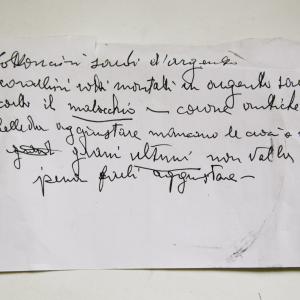 bottoncini sardi d'argento
corallini rotti montati in argento
contro il malocchio — corone antiche
aggiustare mancano le croci e
grani ultimi non val la
pena farli aggiustare —